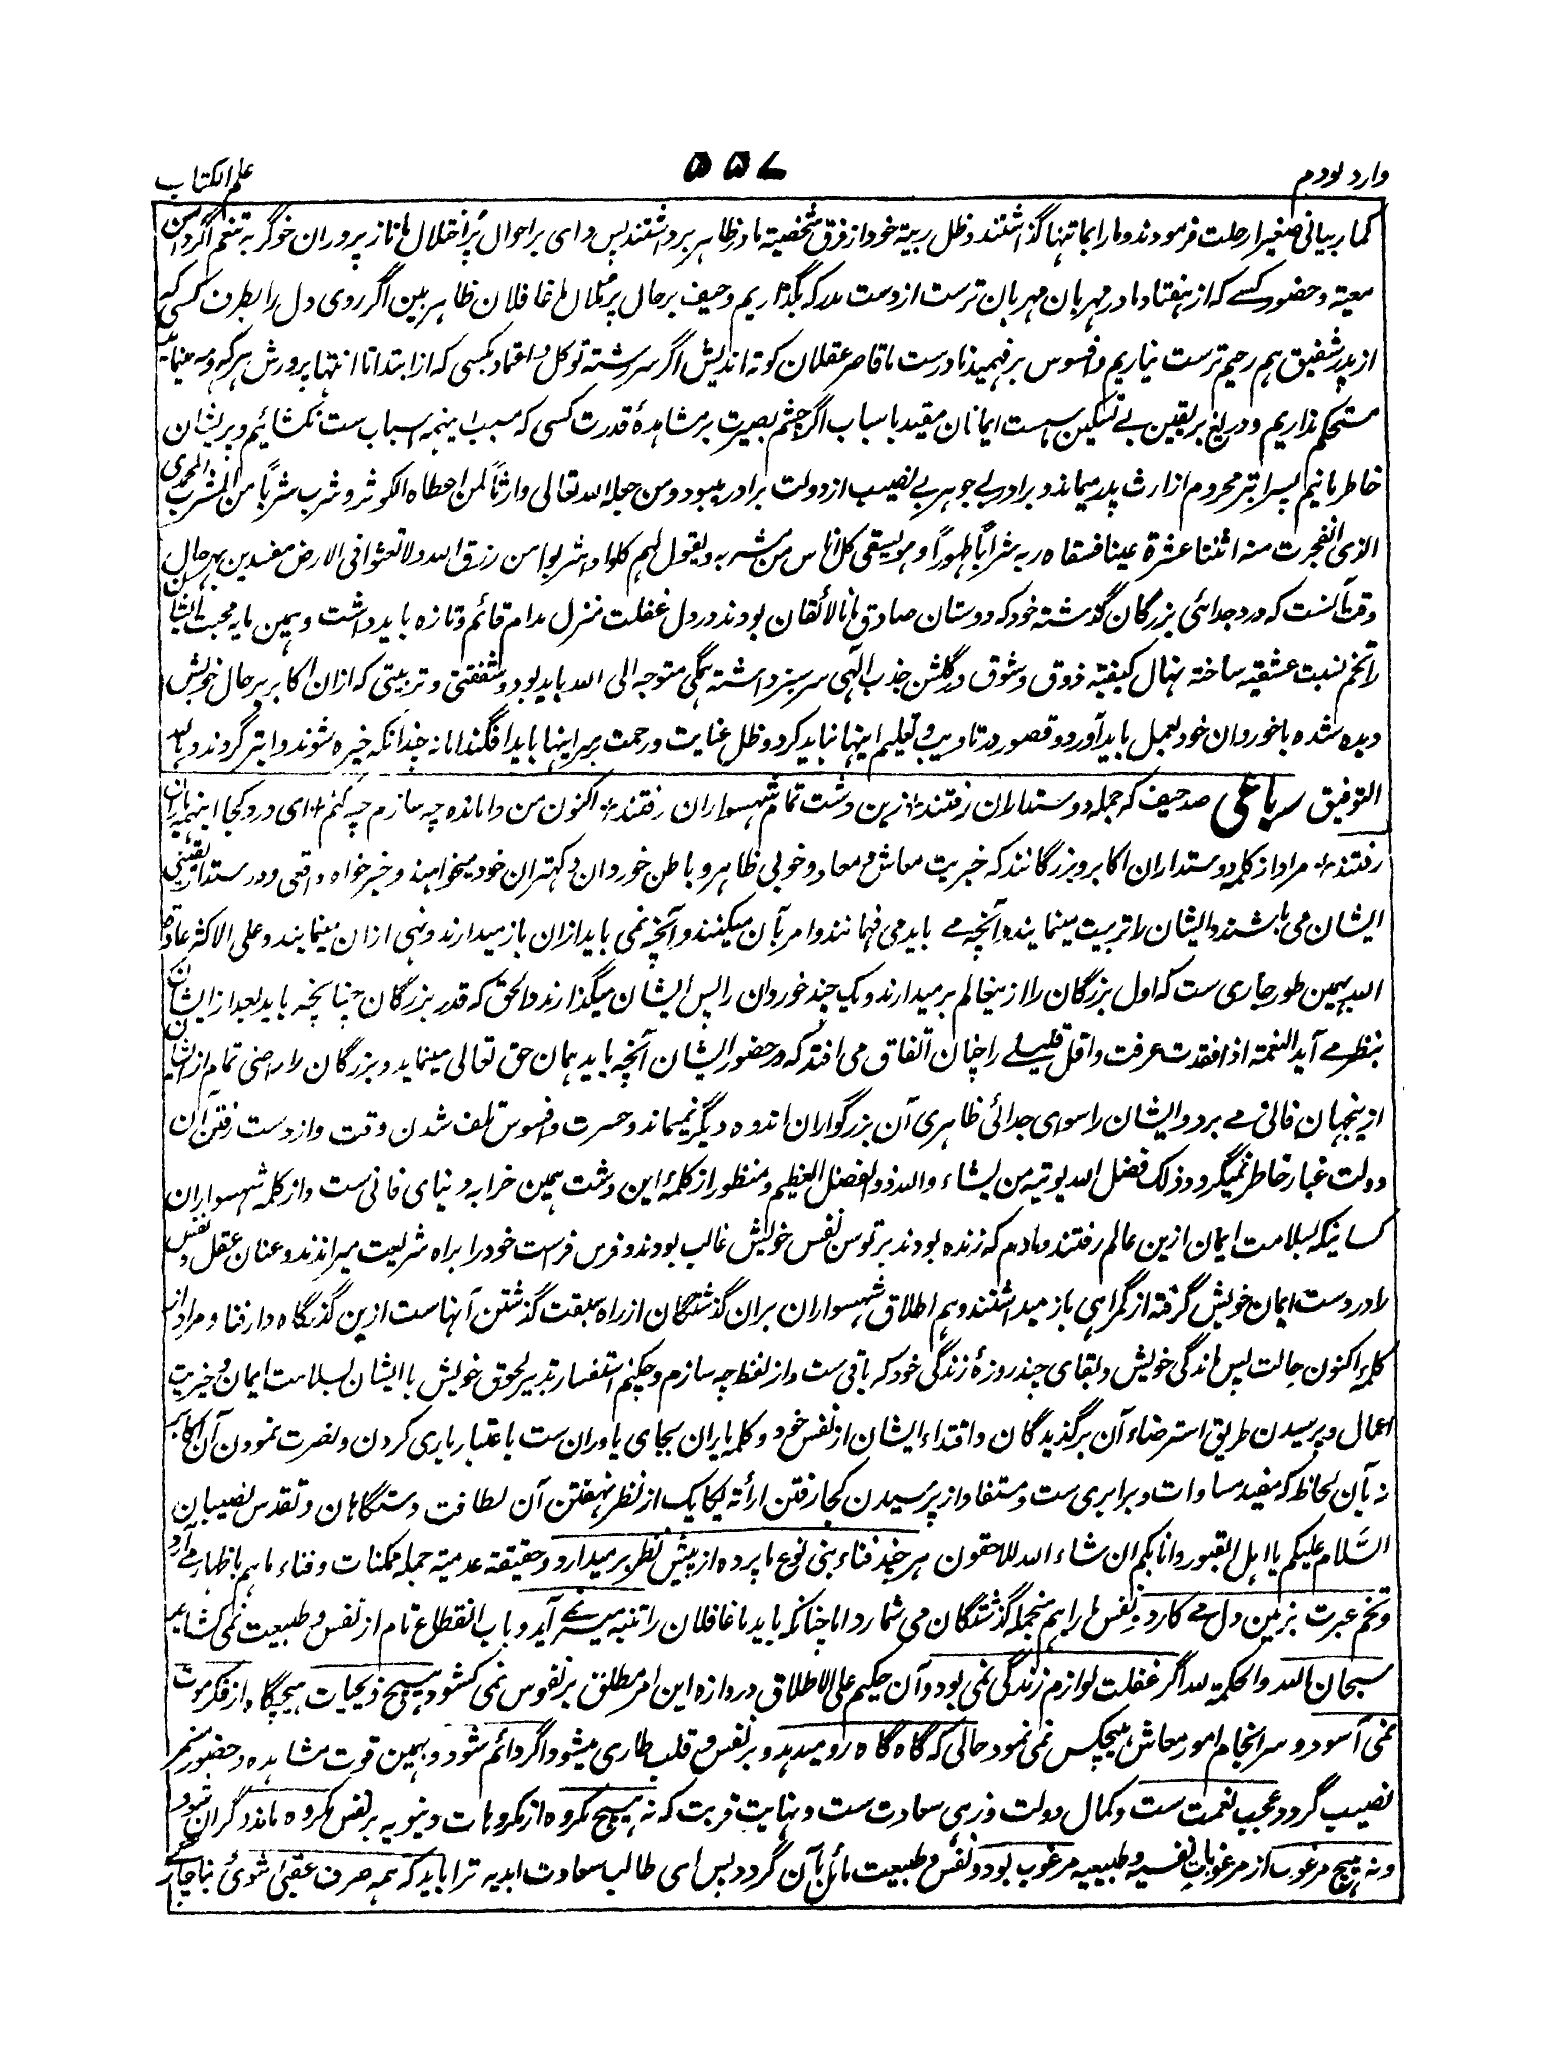 وارد نودم
۵۵۷
علم الکتاب
کما ربیانی صغیرا رحلت فرمودند و ما را اینجا تنها گذاشتند و ظل ربیة خود از فرق شخصیة ما در ظاهر برداشتند پس وای بر احوال پر اختلال ما ناز پروران خوگر به تنعم اگر دامن
معیته و حضور کسے که از هفتاد مادر مهربان مهربان ترست از دست مدرکه بگذاریم و حیف بر حال پر ملال ما غافلان ظاهر بین اگر روی دل را بطرف کسی که
از پدر شفیق هم رحیم ترست نیاریم و افسوس بر فهمید نادرست ما قاصر عقلان کوته اندیش اگر سر رشته توکل و اعتماد بکسی که از ابتدا تا انتها پرورش هر که و مه مینماید
مستحکم نداریم و دریغ بر یقین بے تسکین سست ایمانان مقید باسباب اگر چشم بصیرت بر مشاهدۀ قدرت کسی که مسبب اینهمه اسباب ست نکشائیم و پریشان
خاطر مانیم پسر ابتر محروم از ارث پدر میماند و برادر بے جوهر بے نصیب از دولت برادر میبود و من جعله الله تعالی وارثاً لمن اعطاه الکوثر و شرب شرباً من المشرب المحمدی
الذی انفجرت منه اثنتا عشرة عینا فسقاه ربه شراباً طهوراً و هو یسقی کل اناس من مشربه و یقول لهم کلوا و اشربوا من رزق الله ولا تعثوا فی الارض مفسدین بهر حال
وقت آنست که درد جدائی بزرگان گذشته خود که دوستان صادق ما نالائقان بودند در دل غفلت منزل مدام قائم و تازه باید داشت و همین مایه محبت ایشان
را تخم نسبت عشقیه ساخته نهال کیفیته ذوق و شوق در گلشن جذب الٓهی سر سبز داشته همگی متوجه الی الله باید بود و شفقتی و تربیتی که از ان اکابر بر حال خویش
دیده شده با خوردان خود بعمل باید آورد و قصور در تادیب و تعلیم اینها نباید کرد و ظل عنایت و رحمت بر سر اینها باید افگند اما نه چندانکه خیره شوند و ابتر گردند و بالله
التوفیق رباعی صد حیف که جمله دوستداران رفتند + ازین دشت تمام شهسواران رفتند + اکنون من وامانده چه سازم چه کنم + ای درد کجا اینهمه یاران
رفتند + مراد از کلمۀ دوستداران اکابر و بزرگانند که خیریت معاش و معاد و خوبی ظاهر و باطن خوردان و کهتران خود میخواهند و خیر خواه واقعی و دوستدار یقینی
ایشان می باشند و ایشان را تربیت مینمایند و آنچه مے باید می فهمانند و امر بآن میکنند و آنچه نمی باید ازان باز میدارند و نهی ازان مینمایند و علی الاکثر عادة
الله بهمین طور جاری ست که اول بزرگان را ازینعالم بر میدارند و یک چند خوردان را پس ایشان میگذارند و الحق که قدر بزرگان چنانچه باید بعد از ایشان
بنظر مے آید النعمة اذا فقدت عرفت و اقل قلیلے را چنان اتفاق می افتد که در حضور ایشان آنچه باید همان حق تعالی مینماید و بزرگان را راضی تمام از ایشان
ازینجهان فانی مے برد و ایشان را سوای جدائی ظاهری آن بزرگواران اندوه دیگر نمیماند و حسرت و افسوس تلف شدن وقت و از دست رفتن آن
دولت غبار خاطر نمیگردد و ذلک فضل الله یوتیه من یشاء والله ذو الفضل العظیم و منظور از کلمۀ این دشت همین خرابه دنیای فانی ست و از کلمۀ شهسواران
کسانیکه بسلامت ایمان ازین عالم رفتند و مادام که زنده بودند بر توسن نفس خویش غالب بودند و فرس فراست خود را براه شریعت میراندند و عنان عقل و نفس
را در دست ایمان خویش گرفته از گمراهی باز میداشتند و هم اطلاق شهسواران بران گذشتگان از راه سبقت گذشتن آنهاست ازین گذرگاه دار فنا و مراد از
کلمۀ اکنون حالت پس ماندگی خویش و بقای چند روزۀ زندگی خود که باقی ست و از لفظ چه سازم و چکنم استفسار تدبیر لحوق خویش با ایشان بسلامت ایمان و خیریت
اعمال و پرسیدن طریق استرضاء آن برگزیدگان و اقتداء ایشان از نفس خود و کلمۀ یاران بجای یاوران ست باعتبار یاری کردن و نصرت نمودن آن اکابر
نه بآن لحاظ که مفید مساوات و برابری ست و مستفاد از پرسیدن کجا رفتن اراءة یکایک از نظر نهفتن آن لطافت دستگاهان و تقدس نصیبان
السّلام علیکم یا اهل القبور و انا بکم ان شاء الله للاحقون هر چند فناء بنی نوع ما پرده از پیش نظر بر میدارد و حقیقة عدمیة جمله ممکنات و فناء ما هم باظهار مے آرد
و تخم عبرت بزمین دل مے کارد و نفس ما را هم منجمله گذشتگان می شمارد اما چنانکه باید ما غافلان را تنبه میسر نمے آید و باب انقطاع تام از نفس و طبیعت نمی کشاید
سبحان الله والحکمة لله اگر غفلت لوازم زندگی نمی بود و آن حکیم علی الاطلاق دروازه این امر مطلق بر نفوس نمی کشود هیچ ذیحیات هیچگاه از فکر موت
نمی آسود و سر انجام امور معاش هیچکس نمی نمود حالی که گاه گاه رو میدهد و بر نفس و قلب طاری میشود اگر دائم شود و بهمین قوت مشاهده و حضور مستمر
نصیب گردد عجب نعمت ست و کمال دولت و زهی سعادت ست و نهایت قربت که نه هیچ مکروه از مکروهات دنیویه بر نفس مکروه ماند و گران نبود
و نه هیچ مرغوب از مرغوبات نفسیه و طبیعیه مرغوب بود و نفس و طبیعت مائل بآن گردد پس ای طالب سعادت ابدیه ترا باید که همه صرف عقبی شوی ناچار